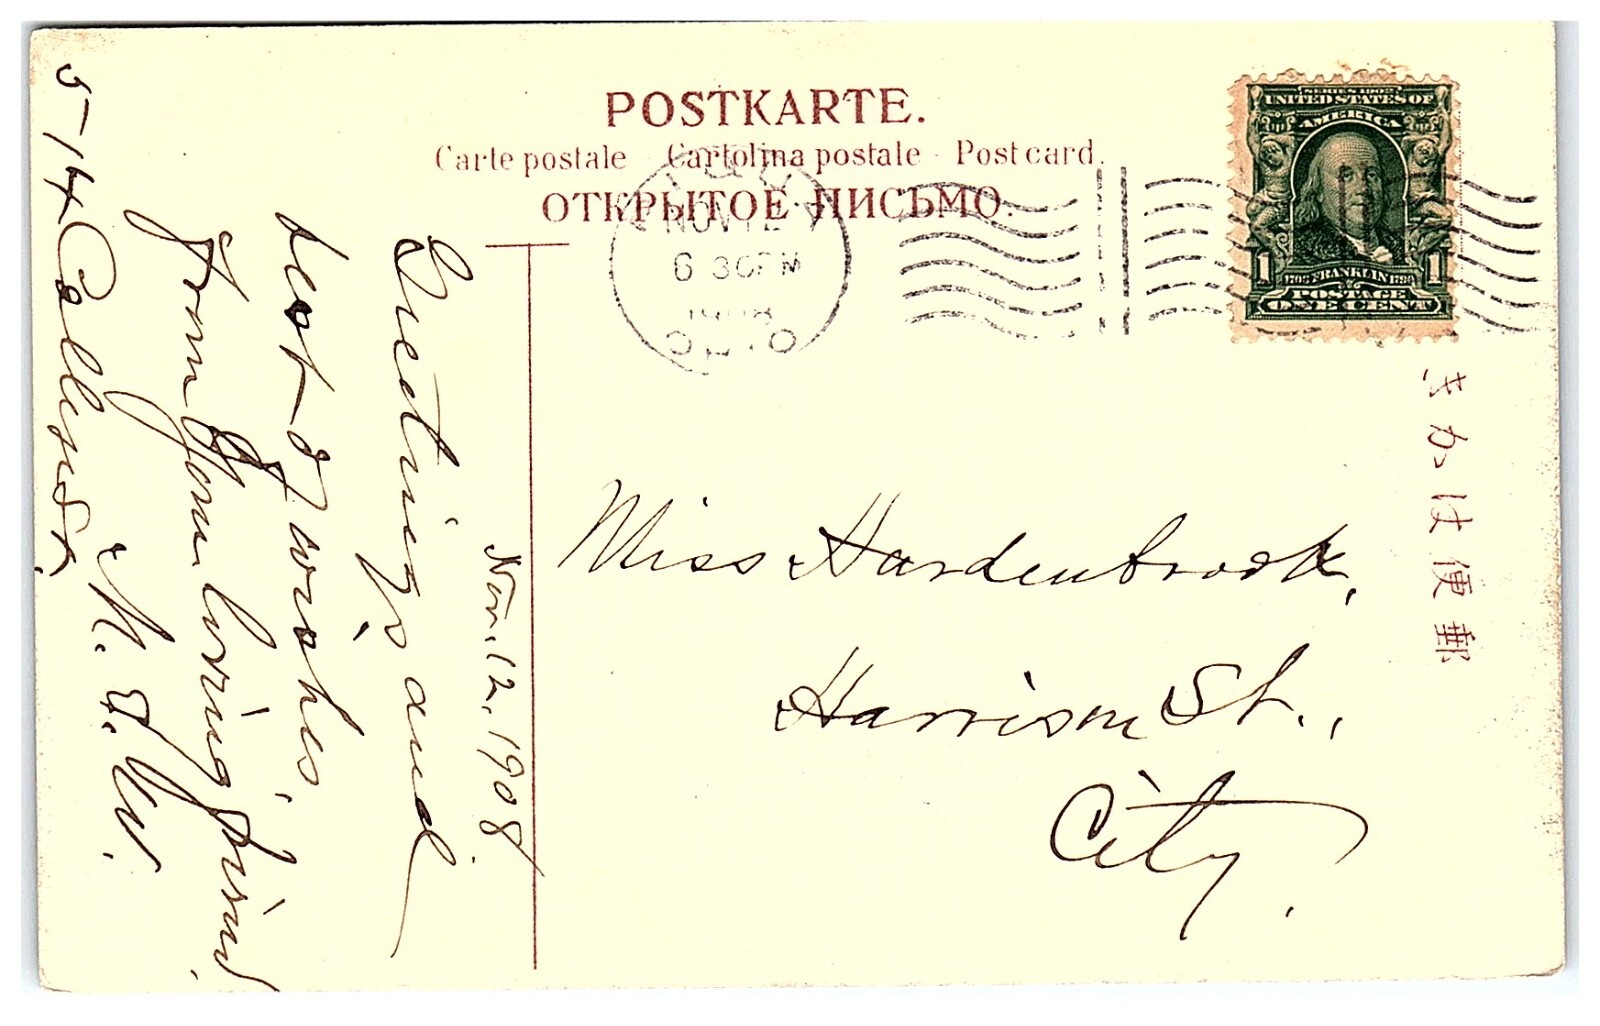 POSTKARTE.
Carte postale - Cartolina postale - Post card.
ОТКРЫТОЕ ПИСЬМО.
NOV 12
6 30 PM
1908
OHIO
SERIES 1902
UNITED STATES OF
AMERICA
1 1
FRANKLIN
POSTAGE
ONE CENT
郵便はかき
Nov. 12, 1908.
Greetings and
best of wishes,
from your loving friend
M. J. W.
514 Collins St,
Miss Hardenbrook,
Harrison St.,
City.